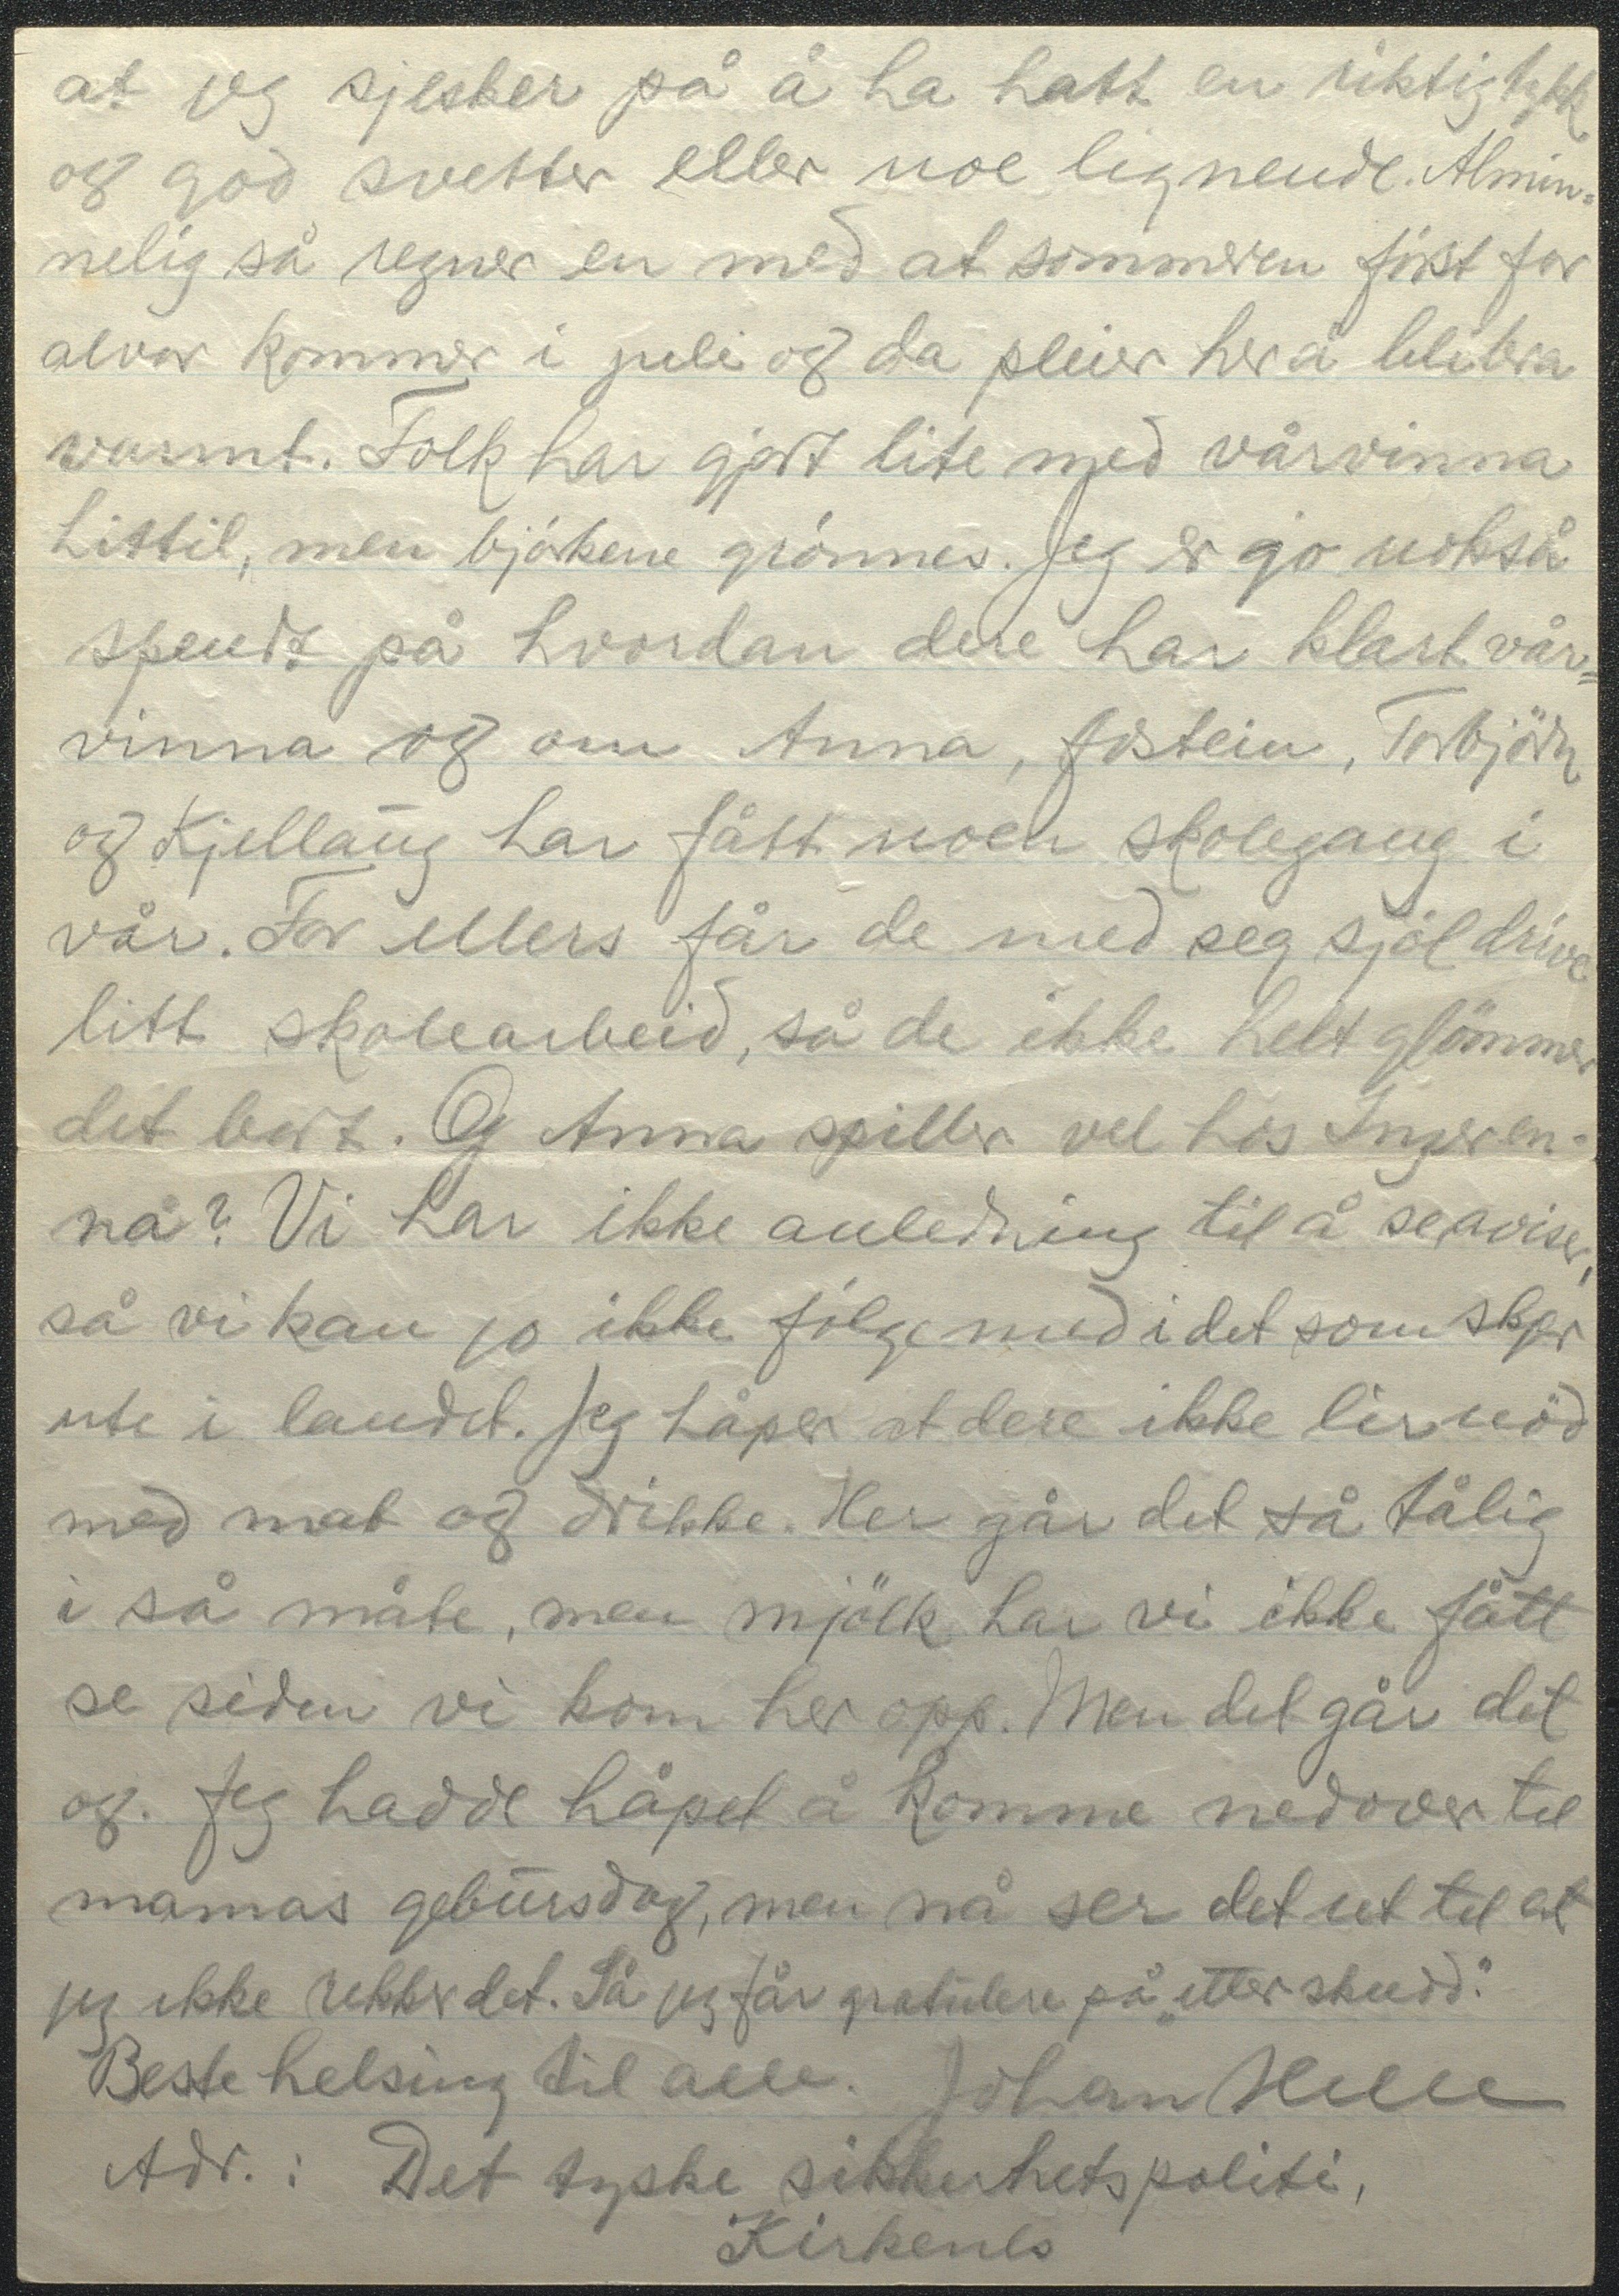 at jeg sjesker på å ha hatt en riktig tykk
og god svetter eller noe lignende. Almin-
nelig så regner en med at sommeren först for
alvor kommer i juli og da pleier her å bli bra
varmt. Folk har gjort lite med vårvinna
hittil, men björkene grönnes. Jeg er jo nokså
spendt på hvordan dere har klart vår=
vinna og om Anna, Jostein, Torbjörn
og Kjellaug har fått noen skolegang i
vår. For ellers får de med seg sjöl drive
litt skolearbeid, så de ikke helt glömmer
det bort. Og Anna spiller vel hos Inger en-
nå? Vi har ikke anledning til å se aviser,
så vi kan jo ikke fölge med i det som skjer
ute i landet. Jeg håper at dere ikke lir nöd
med mat og drikke. Her går det så tålig
i så måte, men mjölk har vi ikke fått
se siden vi kom her opp. Men det går det
og. Jeg hadde håpet å komme nedover til
mamas gebursdag, men nå ser det ut til at
jeg ikke rekker det. Så jeg får gratulere på „etterskudd."
Beste helsing til alle. Johan Hille
Adr.: Det tyske sikkerhetspoliti,
Kirkenes